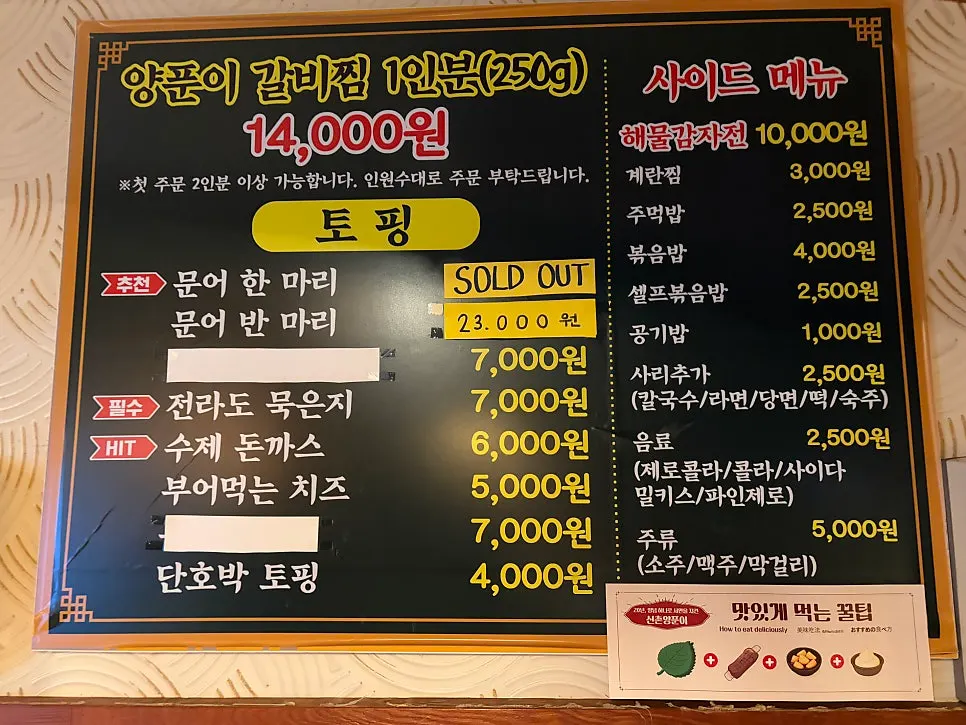 양푼이 갈비찜 1인분(250g)
14,000원
※첫 주문 2인분 이상 가능합니다. 인원수대로 주문 부탁드립니다.
토핑
추천 문어 한 마리 SOLD OUT
문어 반 마리 23.000원
7,000원
필수 전라도 묵은지 7,000원
HIT 수제 돈까스 6,000원
부어먹는 치즈 5,000원
7,000원
단호박 토핑 4,000원
사이드 메뉴
해물감자전 10,000원
계란찜 3,000원
주먹밥 2,500원
볶음밥 4,000원
셀프볶음밥 2,500원
공기밥 1,000원
사리추가 2,500원
(칼국수/라면/당면/떡/숙주)
음료 2,500원
(제로콜라/콜라/사이다
밀키스/파인제로)
주류 5,000원
(소주/맥주/막걸리)
신촌양푼이
맛있게 먹는 꿀팁
How to eat deliciously 美味吃法 おすすめの食べ方